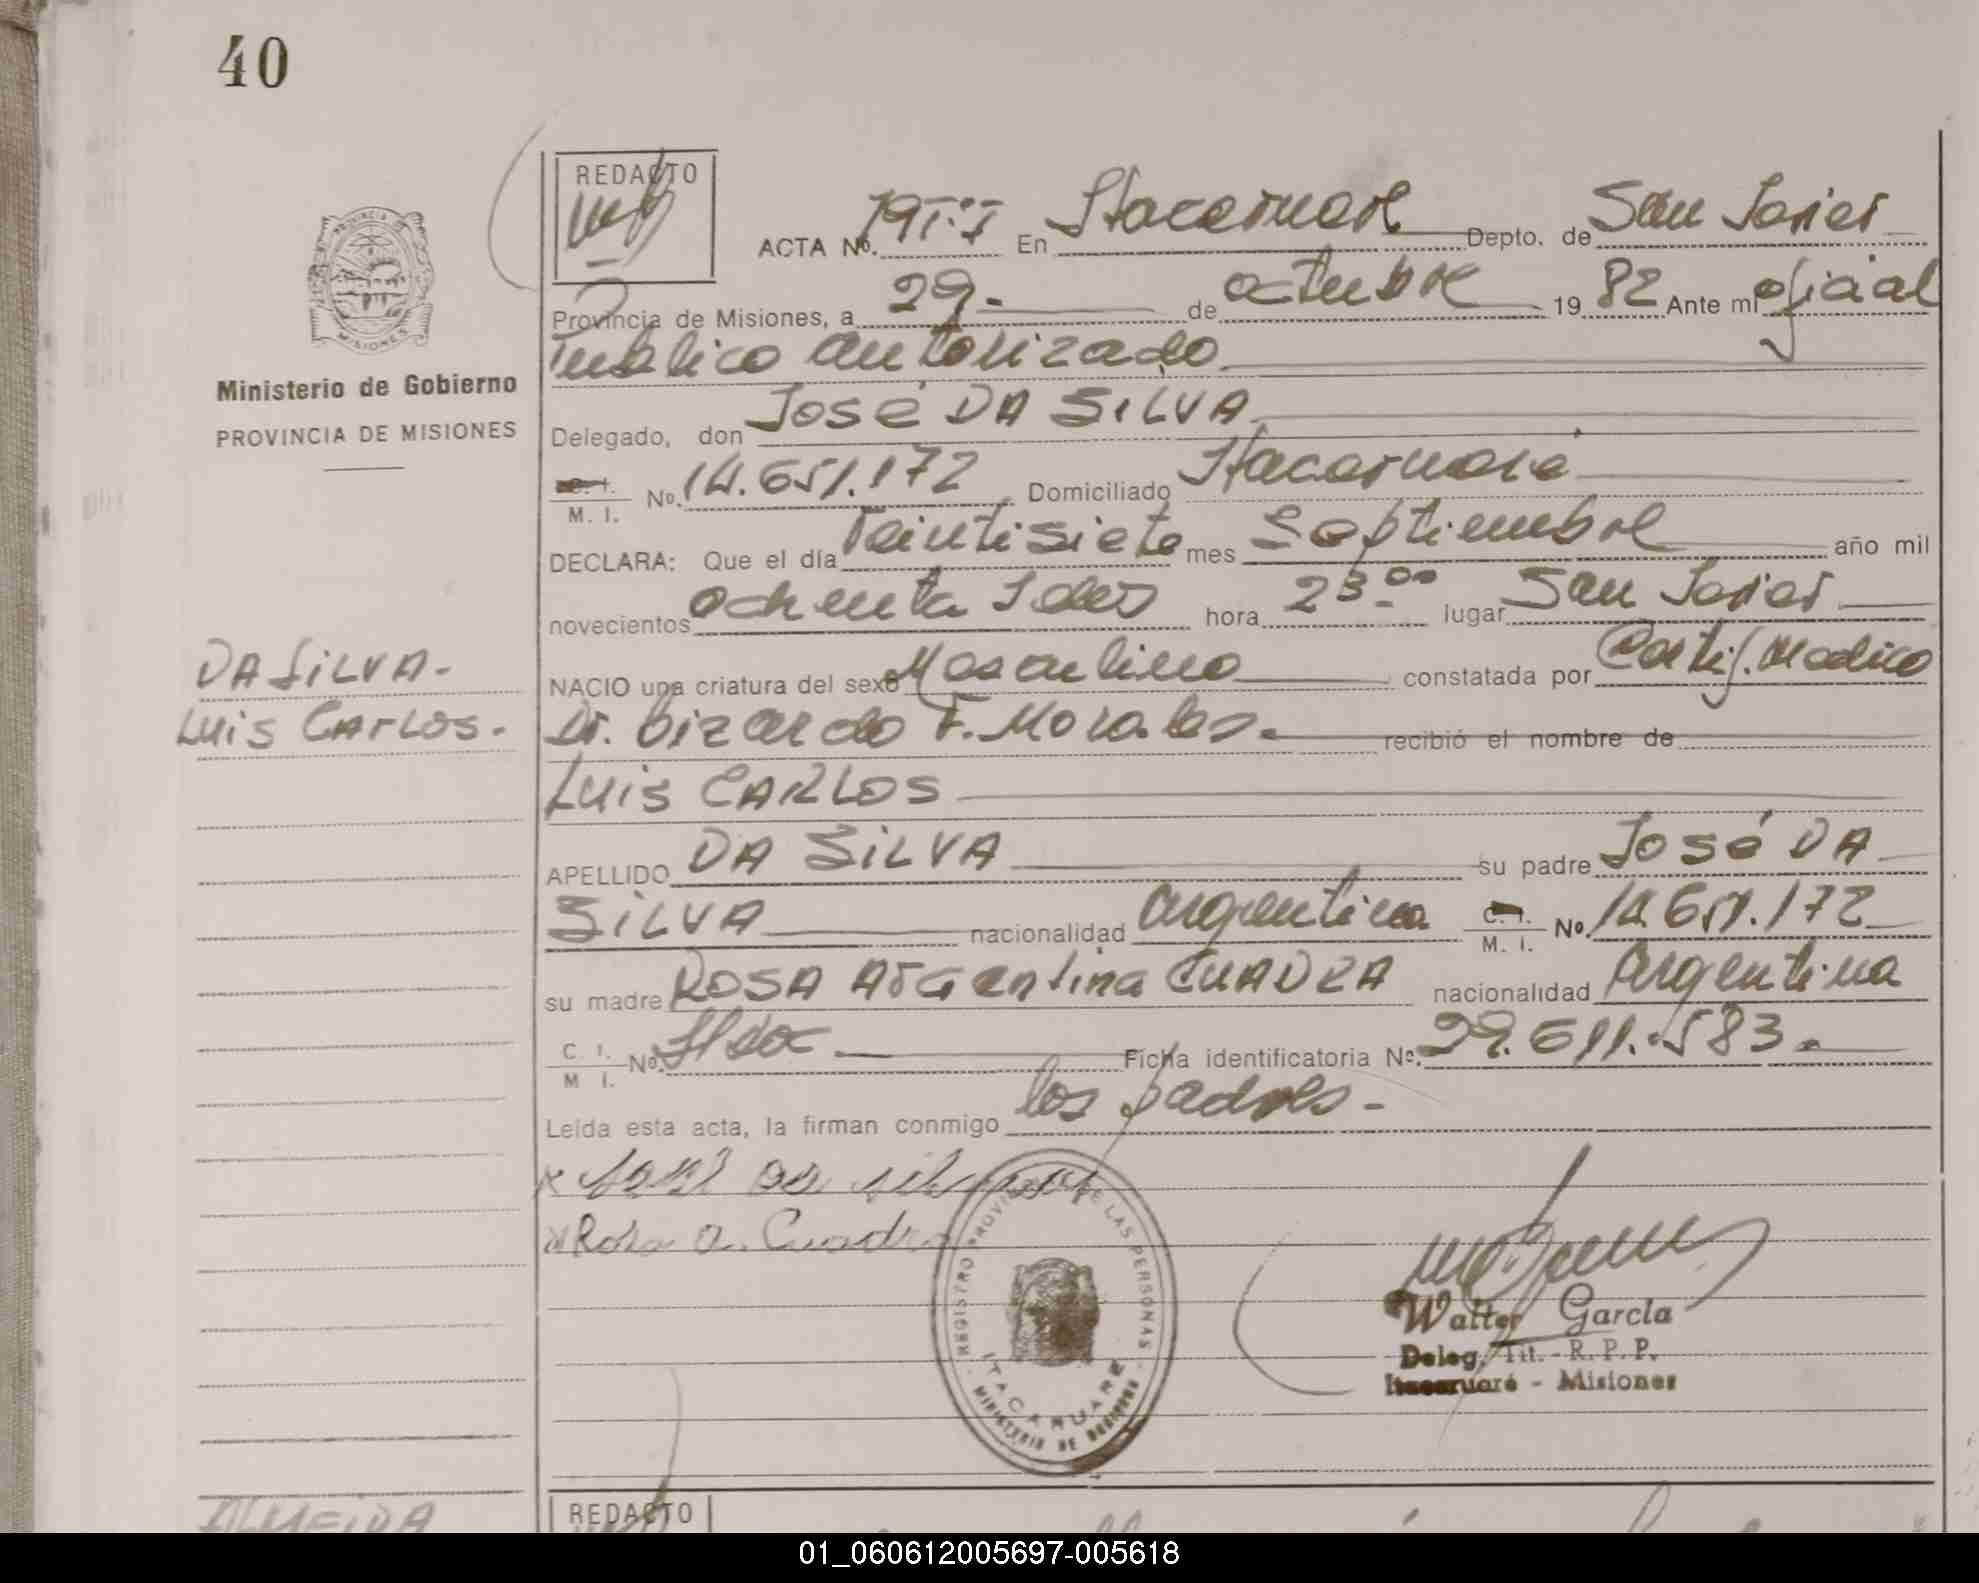 40
REDACTO
ACTA No. En Itacaruare Depto. de San Javier
Provincia de Misiones, a 29- de octubre 19 82 Ante mi oficial
publico autorizado
Ministerio de Gobierno
PROVINCIA DE MISIONES
Delegado, don José DA SILVA
C. I. / M. I. No. 14.651.172 Domiciliado Itacaruaré
DECLARA: Que el día Veintisiete mes Septiembre año mil
novecientos ochenta y dos hora 23 00 lugar San Javier
DA SILVA-
NACIO una criatura del sexo Masculino constatada por Certif. Medico
Luis CARLOS.
Dr. Lizardo F. Morales. recibió el nombre de
Luis CARLOS
APELLIDO DA SILVA su padre José DA
SILVA nacionalidad argentina C. I. / M. I. No. 14.651.172
su madre ROSA ArGentina CUADRA nacionalidad Argentina
C. I. / M. I. No. Ficha identificatoria No. 29.611.583.
Leída esta acta, la firman conmigo los padres-
x José da silva
x Rosa a. Cuadra
REGISTRO PROVINCIAL DE LAS PERSONAS
ITACARUARE
MINISTERIO DE GOBIERNO
Walter García
Deleg. Tit. - R. P. P.
Itacaruaré - Misiones
ALMEIDA
REDACTO
01_060612005697-005618